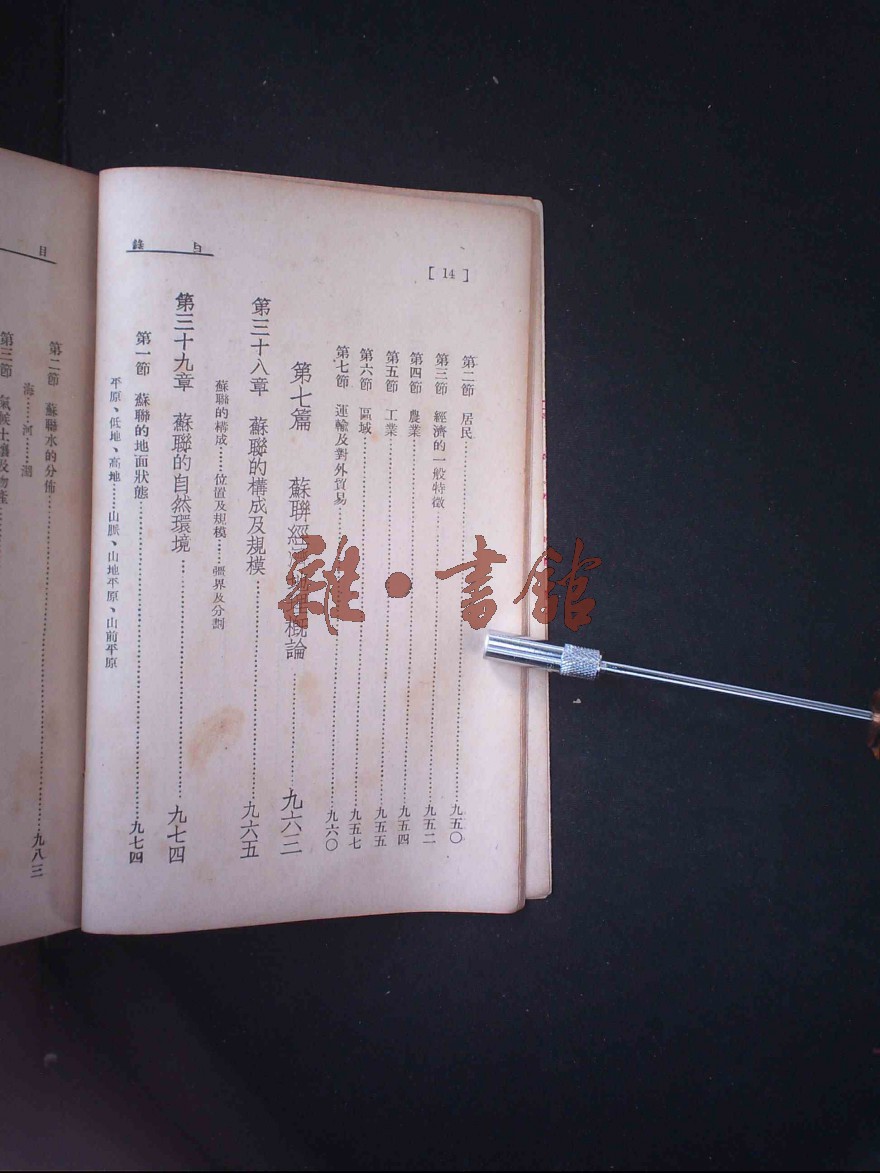 [ 14 ]
目錄
第二節 居民……九五〇
第三節 經濟的一般特徵……九五二
第四節 農業……九五四
第五節 工業……九五五
第六節 區域……九五七
第七節 運輸及對外貿易……九六〇
第七篇 蘇聯經 概論……九六三
第三十八章 蘇聯的構成及規模……九六五
蘇聯的構成……位置及規模……疆界及分劃
第三十九章 蘇聯的自然環境……九七四
第一節 蘇聯的地面狀態……九七四
平原、低地、高地……山脈、山地平原、山前平原
目
第二節 蘇聯水的分佈……九八三
海……河……湖
第三節 氣候土壤及物產
雜·書館